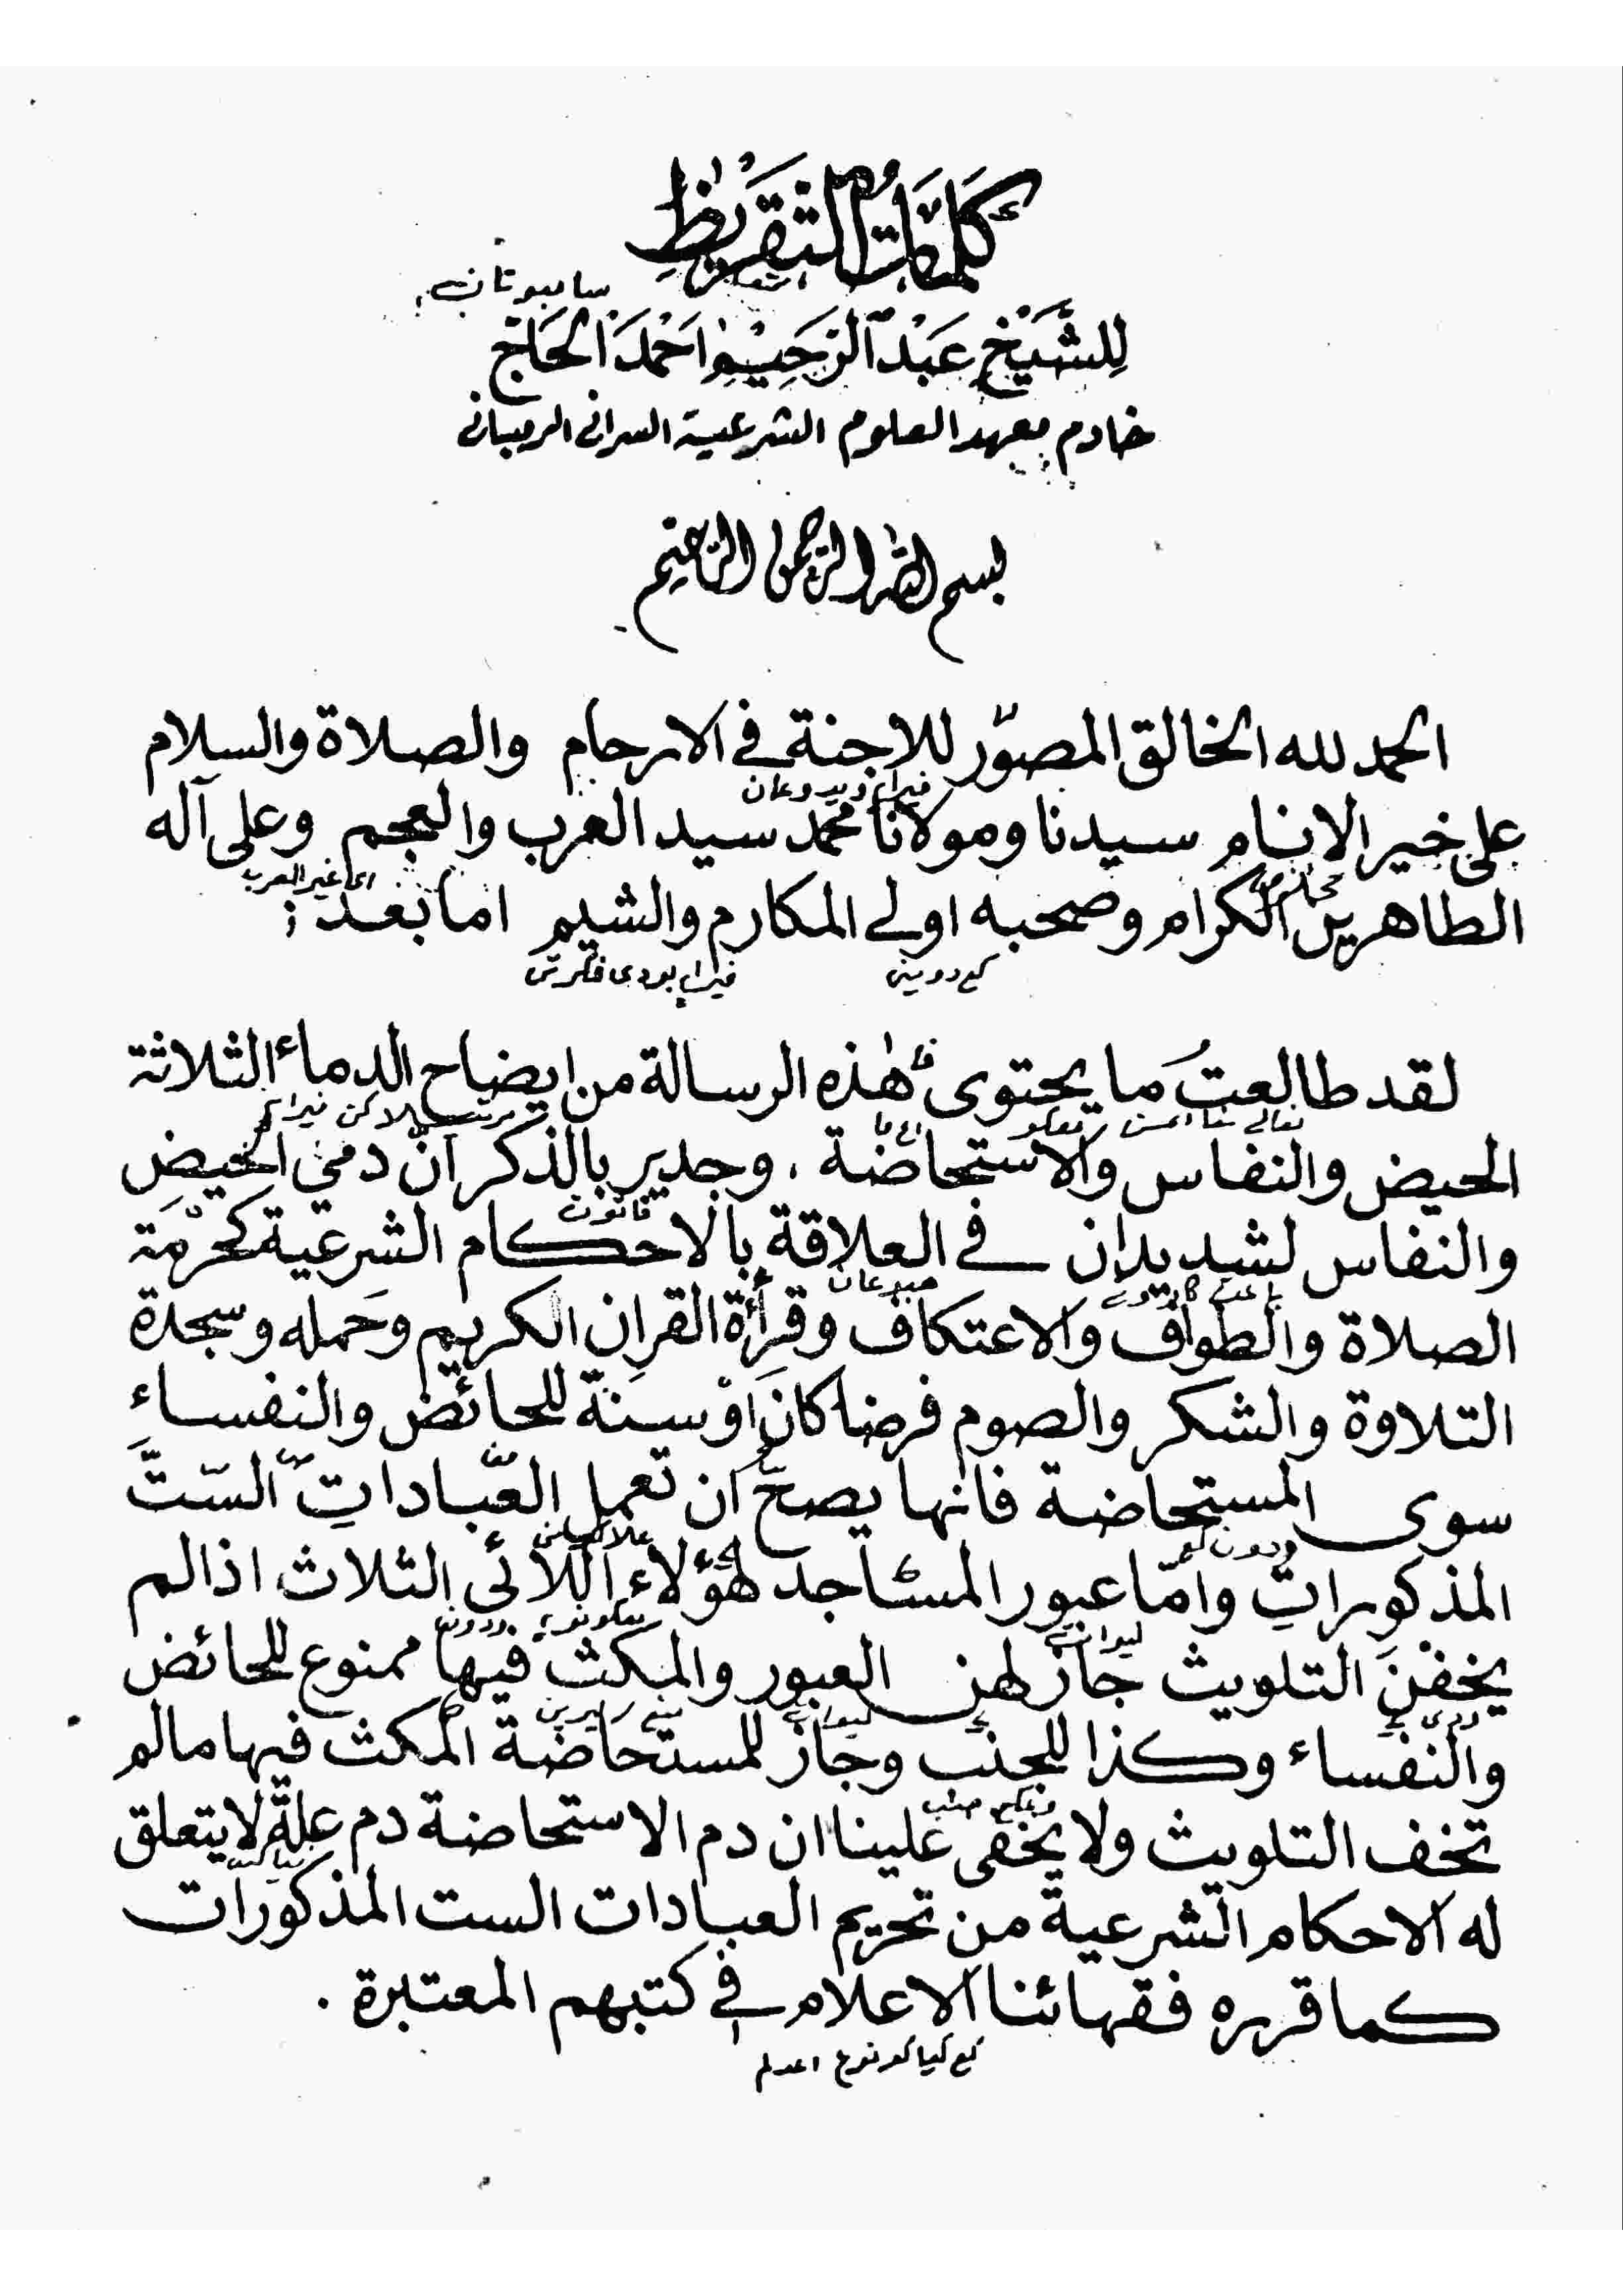 كَلِمَاتُ التَّقْرِيْظِ
سامبوتان
لِلشَّيْخِ عَبْدُ الرَّحِيْمِ اَحْمَدَ الْحَاجّ
خادم معهد العلوم الشرعية السراني الرمباني
بسم الله الرحمن الرحيم
الحمد لله الخالق المصوّر للاجنة في الارحام والصلاة والسلام
على خير الانام سيدنا ومولانا محمد سيد العرب والعجم وعلى آله
اى غير العرب
الطاهرين الكرام وصحبه اولي المكارم والشيم اما بعد :
لقد طالعتُ ما يحتوى هٰذه الرسالة من ايضاح الدماء الثلاثة
الحيض والنفاس والاستحاضة . وجدير بالذكر انّ دمي الحيض
قانون
والنفاس لشديدان في العلاقة بالاحكام الشرعية كحرمة
الصلاة والطواف والاعتكاف وقرأة القران الكريم وحمله وسجدة
التلاوة والشكر والصوم فرضا كان اوْ سنة للحائض والنفساء
سوى المستحاضة فانها يصح ان تعمل العبادات الستّ
المذكورات وامّا عبور المساجد لهؤلاء اللائى الثلاث اذا لم
يخفن التلويث جاز لهن العبور والمكث فيها ممنوع للحائض
والنفساء وكذا للجنب وجاز للمستحاضة المكث فيها مالم
تخف التلويث ولا يخفى علينا ان دم الاستحاضة دم علة لا يتعلق
له الاحكام الشرعية من تحريم العبادات الست المذكورات
كما قرره فقهائنا الاعلام في كتبهم المعتبرة .